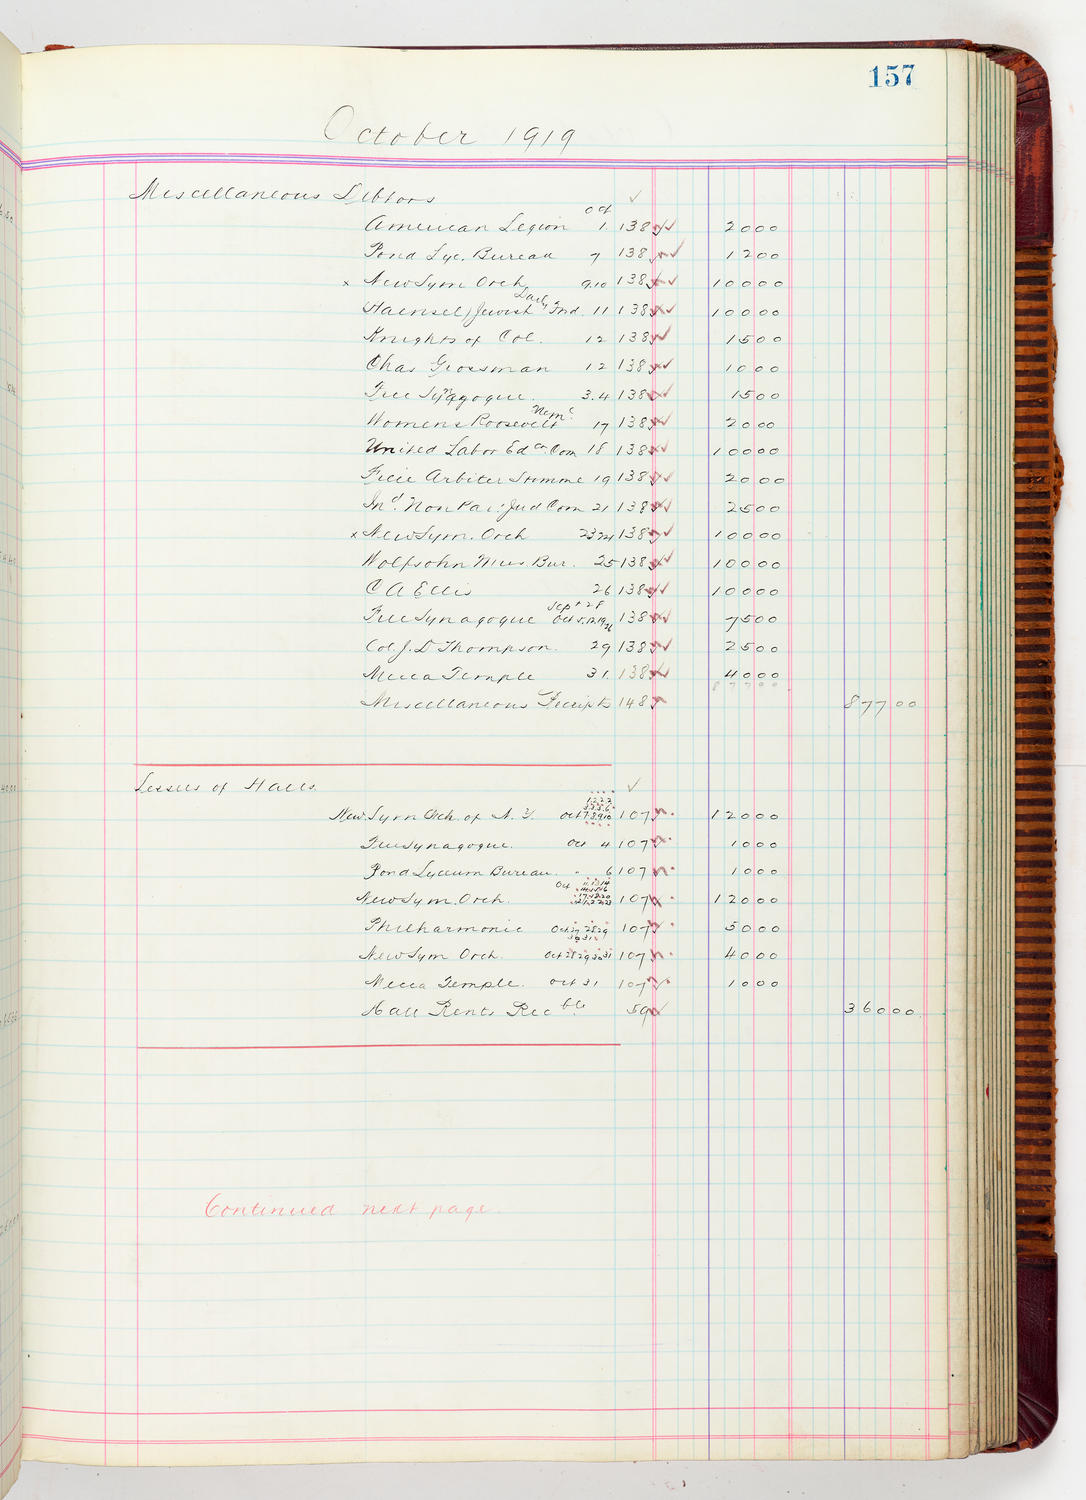 157
October 1919
Miscellaneous Debtors ✓
Oct
American Legion 1. 138 ✓✓ 2000
Pond Lyc. Bureau 7 138 ✓✓ 1200
x New Sym Orch 9.10 138 ✓✓ 10000
Haensel/Jewish Daily Ind. 11 138 ✓✓ 10000
Knights of Col. 12 138 ✓ 1500
Chas Grossman 12 138 ✓✓ 1000
Free Synagogue. 3.4 138 ✓✓ 1500
Womens Roosevelt Mem'l 17 138 ✓✓ 2000
United Labor Edcn Com 18 138 ✓✓ 10000
Freie Arbeiter Stimme 19 138 ✓✓ 2000
Ind. Non Par. Jud Com 21 138 ✓✓ 2500
x New Sym. Orch 23 24 138 ✓✓ 10000
Wolfsohn Mus. Bur. 25 138 ✓✓ 10000
C A Ellis 26 138 ✓✓ 10000
Sept 28
Free Synagogue Oct 5.12.19.26 138 ✓✓ 7500
Col. J. D Thompson. 29 138 ✓✓ 2500
Mecca Temple 31. 138 ✓✓ 4000
87700
Miscellaneous Receipts 148 87700
Lessees of Halls ✓
New. Sym Orch. of N.Y. Oct 107 12000
Free Synagogue. Oct 4 107 1000
Pond Lyceum Bureau. " 6 107 1000
New Sym. Orch. Oct 107 12000
Philharmonic Oct 27 28 29 30 31 107 5000
New Sym Orch. Oct 28 29 30 31 107 4000
Mecca Temple. Oct 31 107 1000
Hall Rents Recble 59 ✓ 36000
Continued next page.